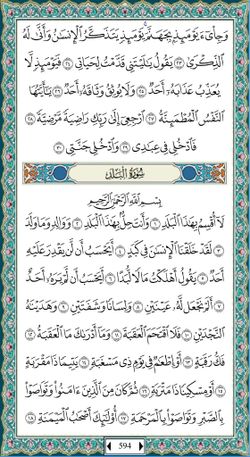 وَجِاْىٓءَ يَوۡمَئِذٍۭ بِجَهَنَّمَۚ يَوۡمَئِذٍ يَتَذَكَّرُ ٱلۡإِنسَٰنُ وَأَنَّىٰ لَهُ
ٱلذِّكۡرَىٰ ٢٣ يَقُولُ يَٰلَيۡتَنِي قَدَّمۡتُ لِحَيَاتِي ٢٤ فَيَوۡمَئِذٍ لَّا
يُعَذِّبُ عَذَابَهُۥٓ أَحَدٌ ٢٥ وَلَا يُوثِقُ وَثَاقَهُۥٓ أَحَدٌ ٢٦ يَٰٓأَيَّتُهَا
ٱلنَّفۡسُ ٱلۡمُطۡمَئِنَّةُ ٢٧ ٱرۡجِعِيٓ إِلَىٰ رَبِّكِ رَاضِيَةً مَّرۡضِيَّةً ٢٨
فَٱدۡخُلِي فِي عِبَٰدِي ٢٩ وَٱدۡخُلِي جَنَّتِي ٣٠
سُورَةُ الْبَلَدِ
بِسۡمِ ٱللَّهِ ٱلرَّحۡمَٰنِ ٱلرَّحِيمِ
لَآ أُقۡسِمُ بِهَٰذَا ٱلۡبَلَدِ ١ وَأَنتَ حِلُّۢ بِهَٰذَا ٱلۡبَلَدِ ٢ وَوَالِدٍ وَمَا وَلَدَ
٣ لَقَدۡ خَلَقۡنَا ٱلۡإِنسَٰنَ فِي كَبَدٍ ٤ أَيَحۡسَبُ أَن لَّن يَقۡدِرَ عَلَيۡهِ
أَحَدٌ ٥ يَقُولُ أَهۡلَكۡتُ مَالًا لُّبَدًا ٦ أَيَحۡسَبُ أَن لَّمۡ يَرَهُۥٓ أَحَدٌ
٧ أَلَمۡ نَجۡعَل لَّهُۥ عَيۡنَيۡنِ ٨ وَلِسَانًا وَشَفَتَيۡنِ ٩ وَهَدَيۡنَٰهُ
ٱلنَّجۡدَيۡنِ ١٠ فَلَا ٱقۡتَحَمَ ٱلۡعَقَبَةَ ١١ وَمَآ أَدۡرَىٰكَ مَا ٱلۡعَقَبَةُ ١٢
فَكُّ رَقَبَةٍ ١٣ أَوۡ إِطۡعَٰمٌ فِي يَوۡمٍ ذِي مَسۡغَبَةٍ ١٤ يَتِيمًا ذَا مَقۡرَبَةٍ
١٥ أَوۡ مِسۡكِينًا ذَا مَتۡرَبَةٍ ١٦ ثُمَّ كَانَ مِنَ ٱلَّذِينَ ءَامَنُواْ وَتَوَاصَوۡاْ
بِٱلصَّبۡرِ وَتَوَاصَوۡاْ بِٱلۡمَرۡحَمَةِ ١٧ أُوْلَٰٓئِكَ أَصۡحَٰبُ ٱلۡمَيۡمَنَةِ ١٨
594